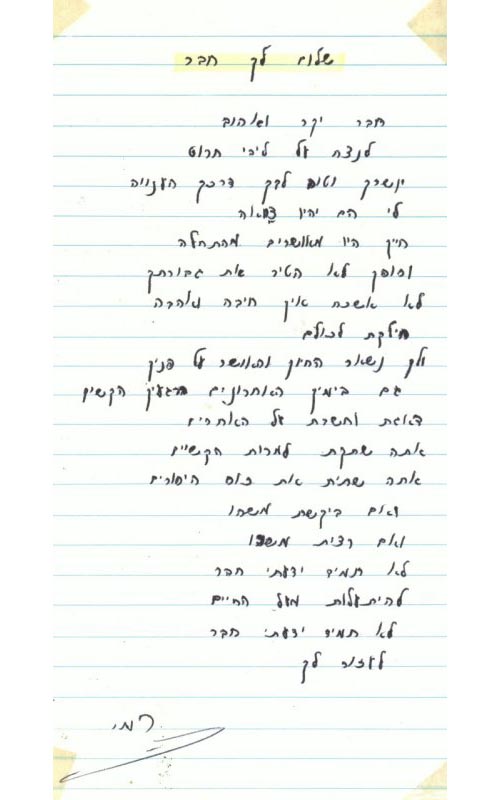 שלום לך חבר
חבר יקר ואהוב
לנצח על ליבי חרוט
יושרך וטוב לבך דרכך הענווה
לי הם יהיו צוואה
חייך היו מאושרים מההתחלה
וסופך לא הסיר את גבורתך
לא אשכח איך חיבה ואהבה
חילקת לכולם
ולך נשאר החיוך והאושר על פניך
גם בימיך האחרונים הרגעיך הקשים
דאגת וחשבת על האחרים
אתה שתקת למרות הקשיים
אתה שתית את כוס היסורים
ואם ביקשת משהו
ואם רצית משהו
לא תמיד ידעתי חבר
להתעלות מעל החיים
לא תמיד ידעתי חבר
לעזור לך
רמי